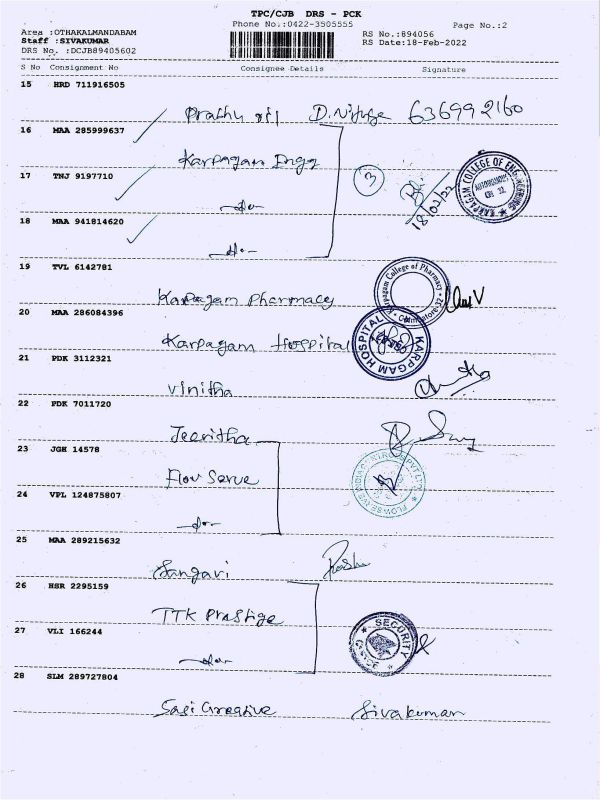 TPC/CJB DRS - PCK
Phone No.:0422-3505555
Page No.:2
Area :OTHAKALMANDABAM
Staff :SIVAKUMAR
DRS No. :DCJB89405602
RS No.:894056
RS Date:18-Feb-2022
S No Consignment No Consignee Details Signature
15 HRD 711916505
Prabhu D. Nithya 636992160
16 MAA 285999637
Karpagam Engg
17 TNJ 9197710
3
18/02/22
-do-
KARPAGAM COLLEGE OF ENGINEERING
18 MAA 941814620
-do-
19 TVL 6142781
Karpagam Pharmacy
Karpagam College of Pharmacy
Coimbatore-32
20 MAA 286084396
Karpagam Hospital
KARPAGAM HOSPITAL
21 PDK 3112321
Vinitha
22 PDK 7011720
Jeevitha
23 JGH 14578
Flow Serve
24 VPL 124875807
-do-
25 MAA 289215632
Sangavi
26 HSR 2295159
TTK Prestige
SECURITY
27 VLI 166244
-do-
28 SLM 289727804
Sasi Creative Sivakumar